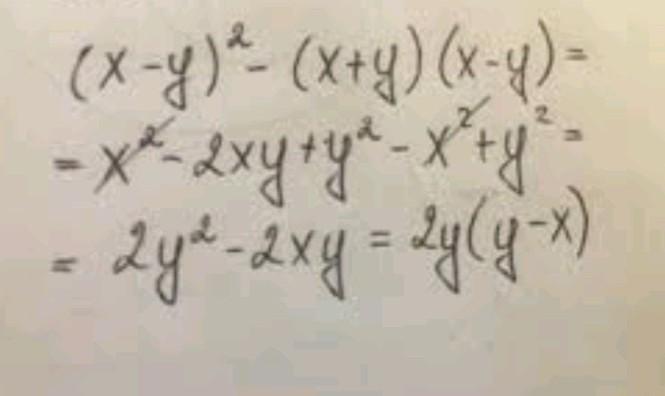 (x-y)²- (x+y)(x-y)=
= x²- 2xy+y² - x²+y² =
= 2y² -2xy = 2y(y-x)